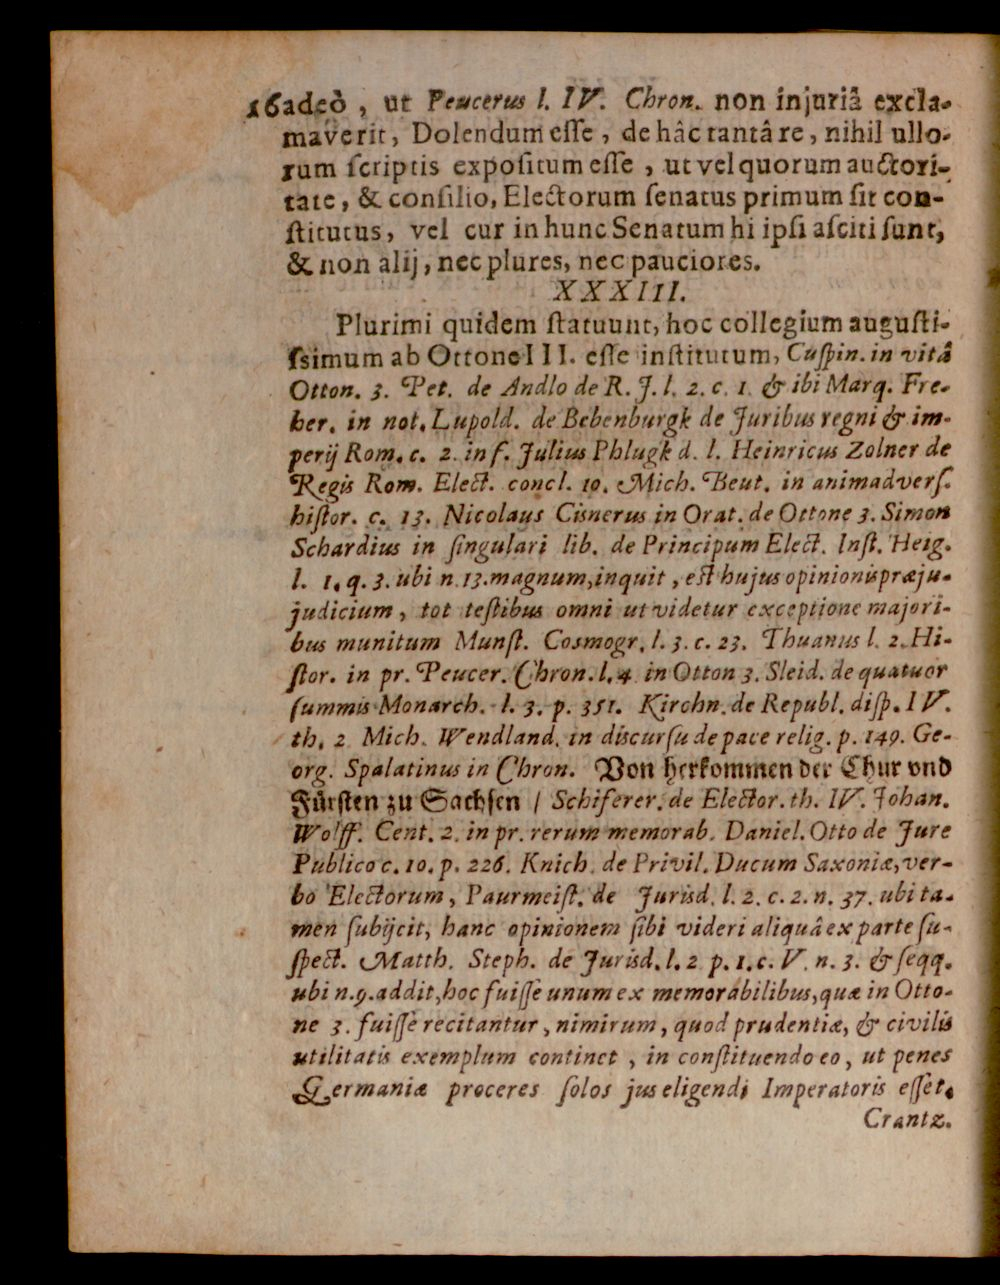 16adeò, ut Peucerus l. IV. Chron. non injuriâ excla-
maverit, Dolendum esse, de hâc tantâ re, nihil ullo-
rum scriptis expositum esse, ut vel quorum auctori-
tate, & consilio, Electorum senatus primum sit con-
stitutus, vel cur in hunc Senatum hi ipsi asciti sunt,
& non alij, nec plures, nec pauciores.
XXXIII.
Plurimi quidem statuunt, hoc collegium augusti-
ssimum ab Ottone III. esse institutum, Cuspin. in vitâ
Otton. 3. Pet. de Andlo de R. J. l. 2. c. 1. & ibi Marq. Fre-
her. in not. Lupold. de Bebenburgk de Juribus regni & im-
perij Rom. c. 2. in f. Julius Phlugk d. l. Heinricus Zolner de
Regis Rom. Elect. concl. 10. Mich. Beut. in animadvers.
histor. c. 13. Nicolaus Cisnerus in Orat. de Ottone 3. Simon
Schardius in singulari lib. de Principum Elect. Inst. Heig.
l. 1. q. 3. ubi n. 13. magnum, inquit, est hujus opinionis præju-
judicium, tot testibus omni ut videtur exceptione majori-
bus munitum Munst. Cosmogr. l. 3. c. 23. Thuanus l. 2. Hi-
stor. in pr. Peucer. Chron. l. 4 in Otton 3. Sleid. de quatuor
summis Monarch. l. 3. p. 351. Kirchn. de Republ. disp. IV.
th. 2 Mich. Wendland. in discursu de pace relig. p. 149. Ge-
org. Spalatinus in Chron. Von herkommen der Chur vnd
Fürsten zu Sachsen / Schiferer. de Elector. th. IV. Johan.
Wolff. Cent. 2. in pr. rerum memorab. Daniel. Otto de Jure
Publico c. 10. p. 226. Knich. de Privil. Ducum Saxoniæ, ver-
bo Electorum, Paurmeist. de Jurisd. l. 2. c. 2. n. 37. ubi ta-
men subijcit, hanc opinionem sibi videri aliquâ ex parte su-
spect. Matth. Steph. de Jurisd. l. 2 p. 1. c. V. n. 3. & seqq.
ubi n. 9. addit, hoc fuisse unum ex memorabilibus, quæ in Otto-
ne 3. fuisse recitantur, nimirum, quod prudentiæ, & civilis
utilitatis exemplum continet, in constituendo eo, ut penes
Germaniæ proceres solos jus eligendi Imperatoris esset.
Crantz.